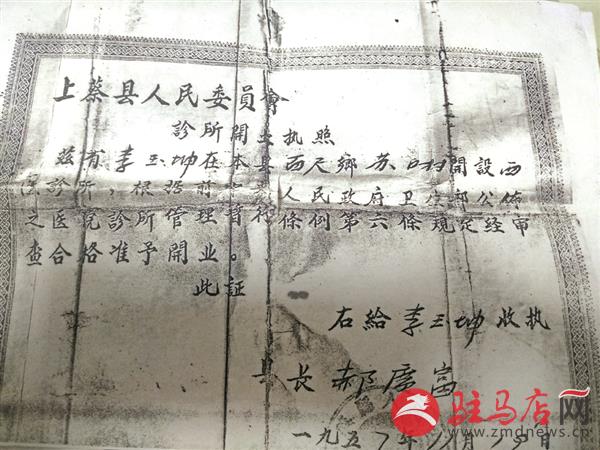 上蔡县人民委員會
診所開业执照
兹有李玉坤在本县西尺鄉苏 開設西
診所,根据前 人民政府卫 部公佈
之医院診所管理暫行條例第六條規定经审
查合格准予開业。
此証
右給李玉坤收执
县長郝廣富
一九五 年 月 日
驻马店网
www.zmdnews.cn